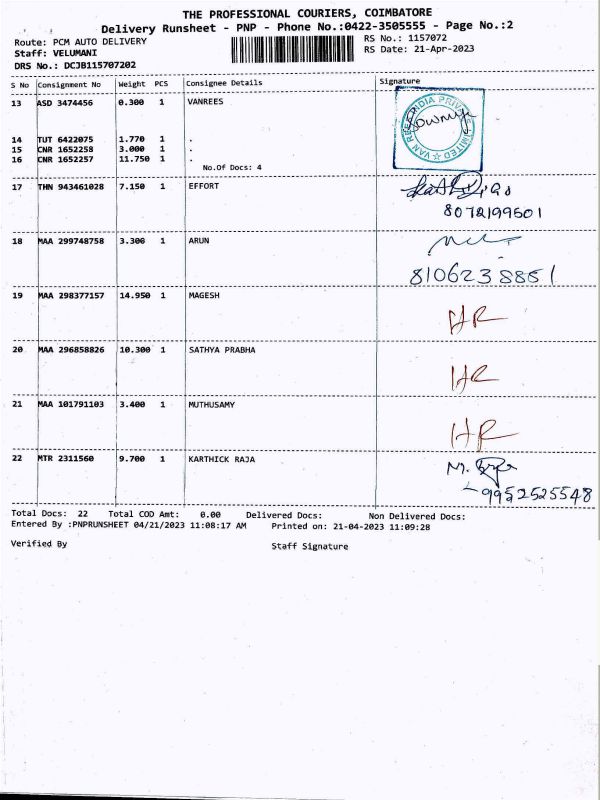 THE PROFESSIONAL COURIERS, COIMBATORE
Delivery Runsheet - PNP - Phone No.:0422-3505555 - Page No.:2
Route: PCM AUTO DELIVERY RS No.: 1157072
Staff: VELUMANI RS Date: 21-Apr-2023
DRS No.: DCJB115707202
S No Consignment No Weight PCS Consignee Details Signature
13 ASD 3474456 0.300 1 VANREES
Sowmya
14 TUT 6422075 1.770 1 .
15 CNR 1652258 3.000 1 .
16 CNR 1652257 11.750 1 .
No.Of Docs: 4
17 THN 943461028 7.150 1 EFFORT
8072199501
18 MAA 299748758 3.300 1 ARUN
8106238851
19 MAA 298377157 14.950 1 MAGESH
HR
20 MAA 296858826 10.300 1 SATHYA PRABHA
HR
21 MAA 101791103 3.400 1 MUTHUSAMY
HR
22 MTR 2311560 9.700 1 KARTHICK RAJA
9952525548
Total Docs: 22 Total COD Amt: 0.00 Delivered Docs: Non Delivered Docs:
Entered By :PNPRUNSHEET 04/21/2023 11:08:17 AM Printed on: 21-04-2023 11:09:28
Verified By Staff Signature